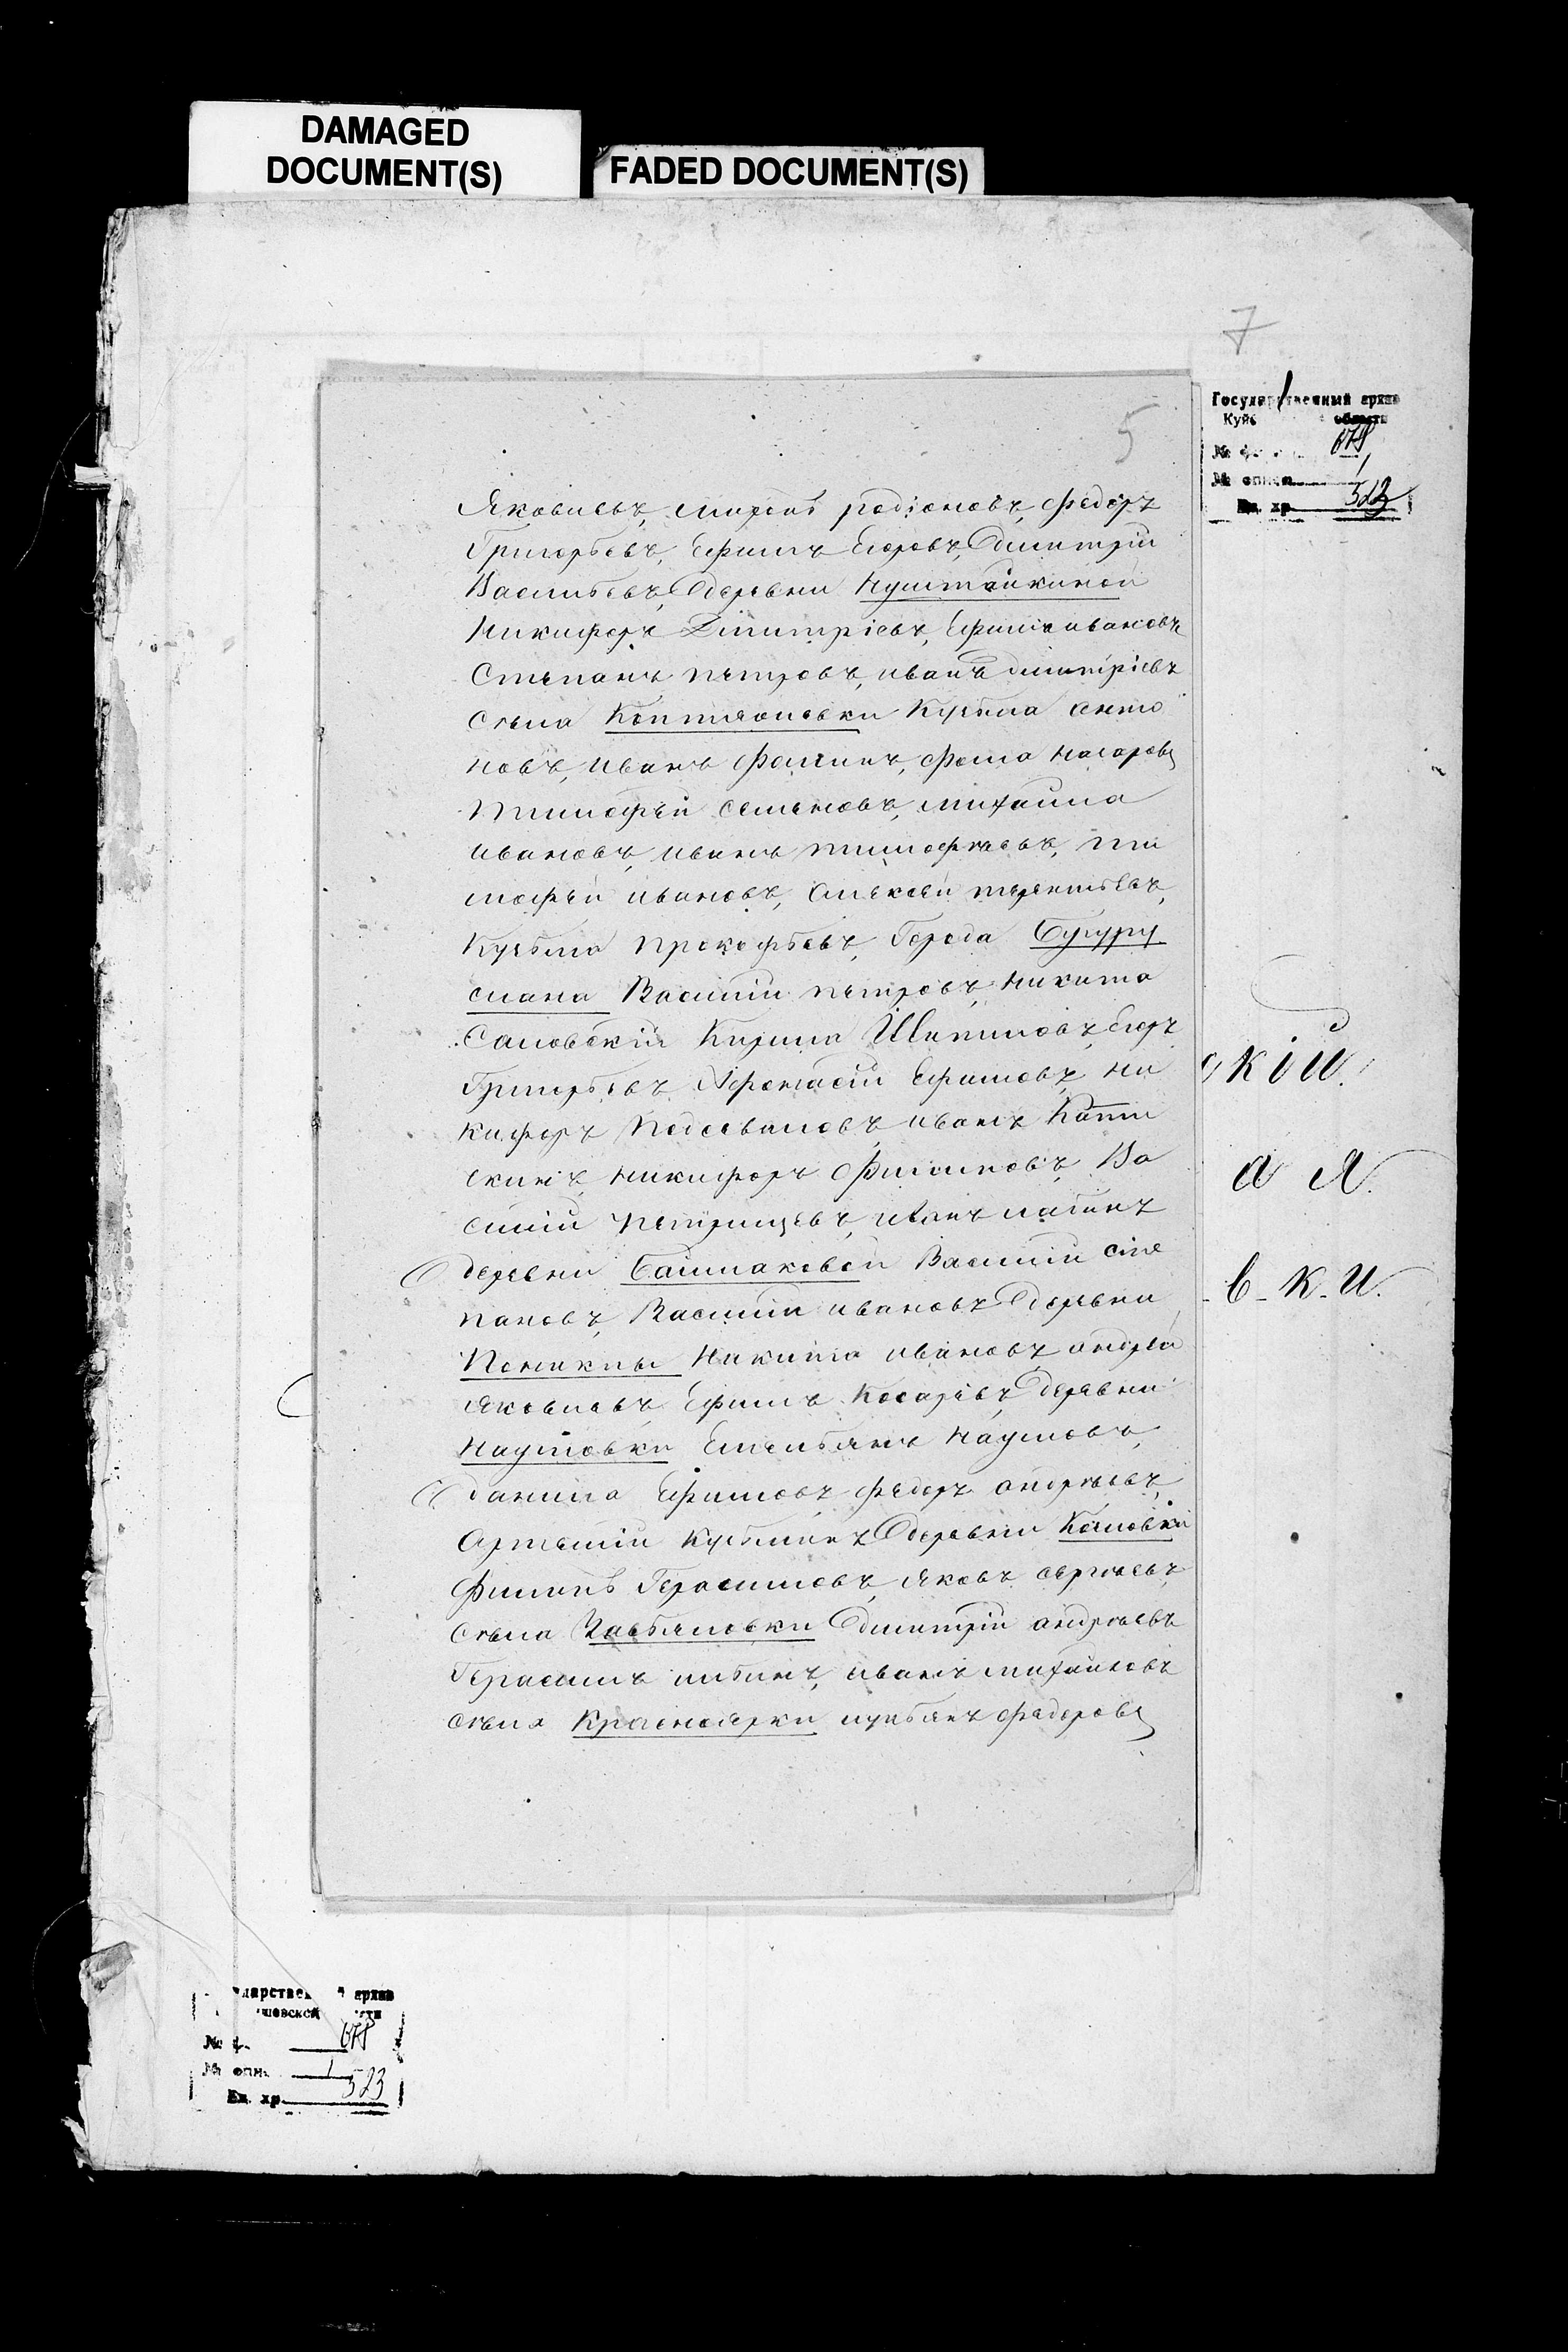 DAMAGED
DOCUMENT(S)
FADED DOCUMENT(S)
7
5
Государственный архив
Куйб области
№ 678
№ описи 1
Ед. хр. 523
Яковлевъ, миронъ родіоновъ, федоръ
Григорьевъ, Ефимъ Егоровъ, Дмитрій
Васильевъ, деревни Нуштайкиной
Никифоръ Димитріевъ, Ефимъ ивановъ
Степанъ петровъ, иванъ димитріевъ
Села Коптяжевки Кузьма анто
новъ, иванъ фоминъ, фома назаровъ
тимофѣй семеновъ, михайла
ивановъ, иванъ тимофѣевъ, ти
мофѣй ивановъ, алексѣй терентьевъ,
Кузьма прокофьевъ, Города Бугуру
слана Василій петровъ, никита
Самовскій Кирила Шипиловъ, Егоръ
Григорьевъ Афонасій Ефимовъ, ни
кифоръ Подсеваловъ иванъ
никифоръ филиповъ, Ва
силій иванъ лапинъ
деревни Башмаковой Василій сте
пановъ, Василій ивановъ деревни
Поникпы Никита ивановъ андрей
Яковлевъ, Ефимъ Косаревъ, деревни
Наумовки Емельянъ Наумовъ,
данила Ефимовъ федоръ андреевъ,
Артемій Кузьминъ деревни Камовки
Филипъ Герасимовъ, яковъ сергѣевъ,
села дмитрій андреевъ
Герасимъ ильинъ, иванъ михайловъ
села Красноярки лукьянъ федоровъ
кій.
а я.
в-к-и.
ударствен архив
шовской сти
№ ф. 678
№ опи. 1
Ед. хр. 523